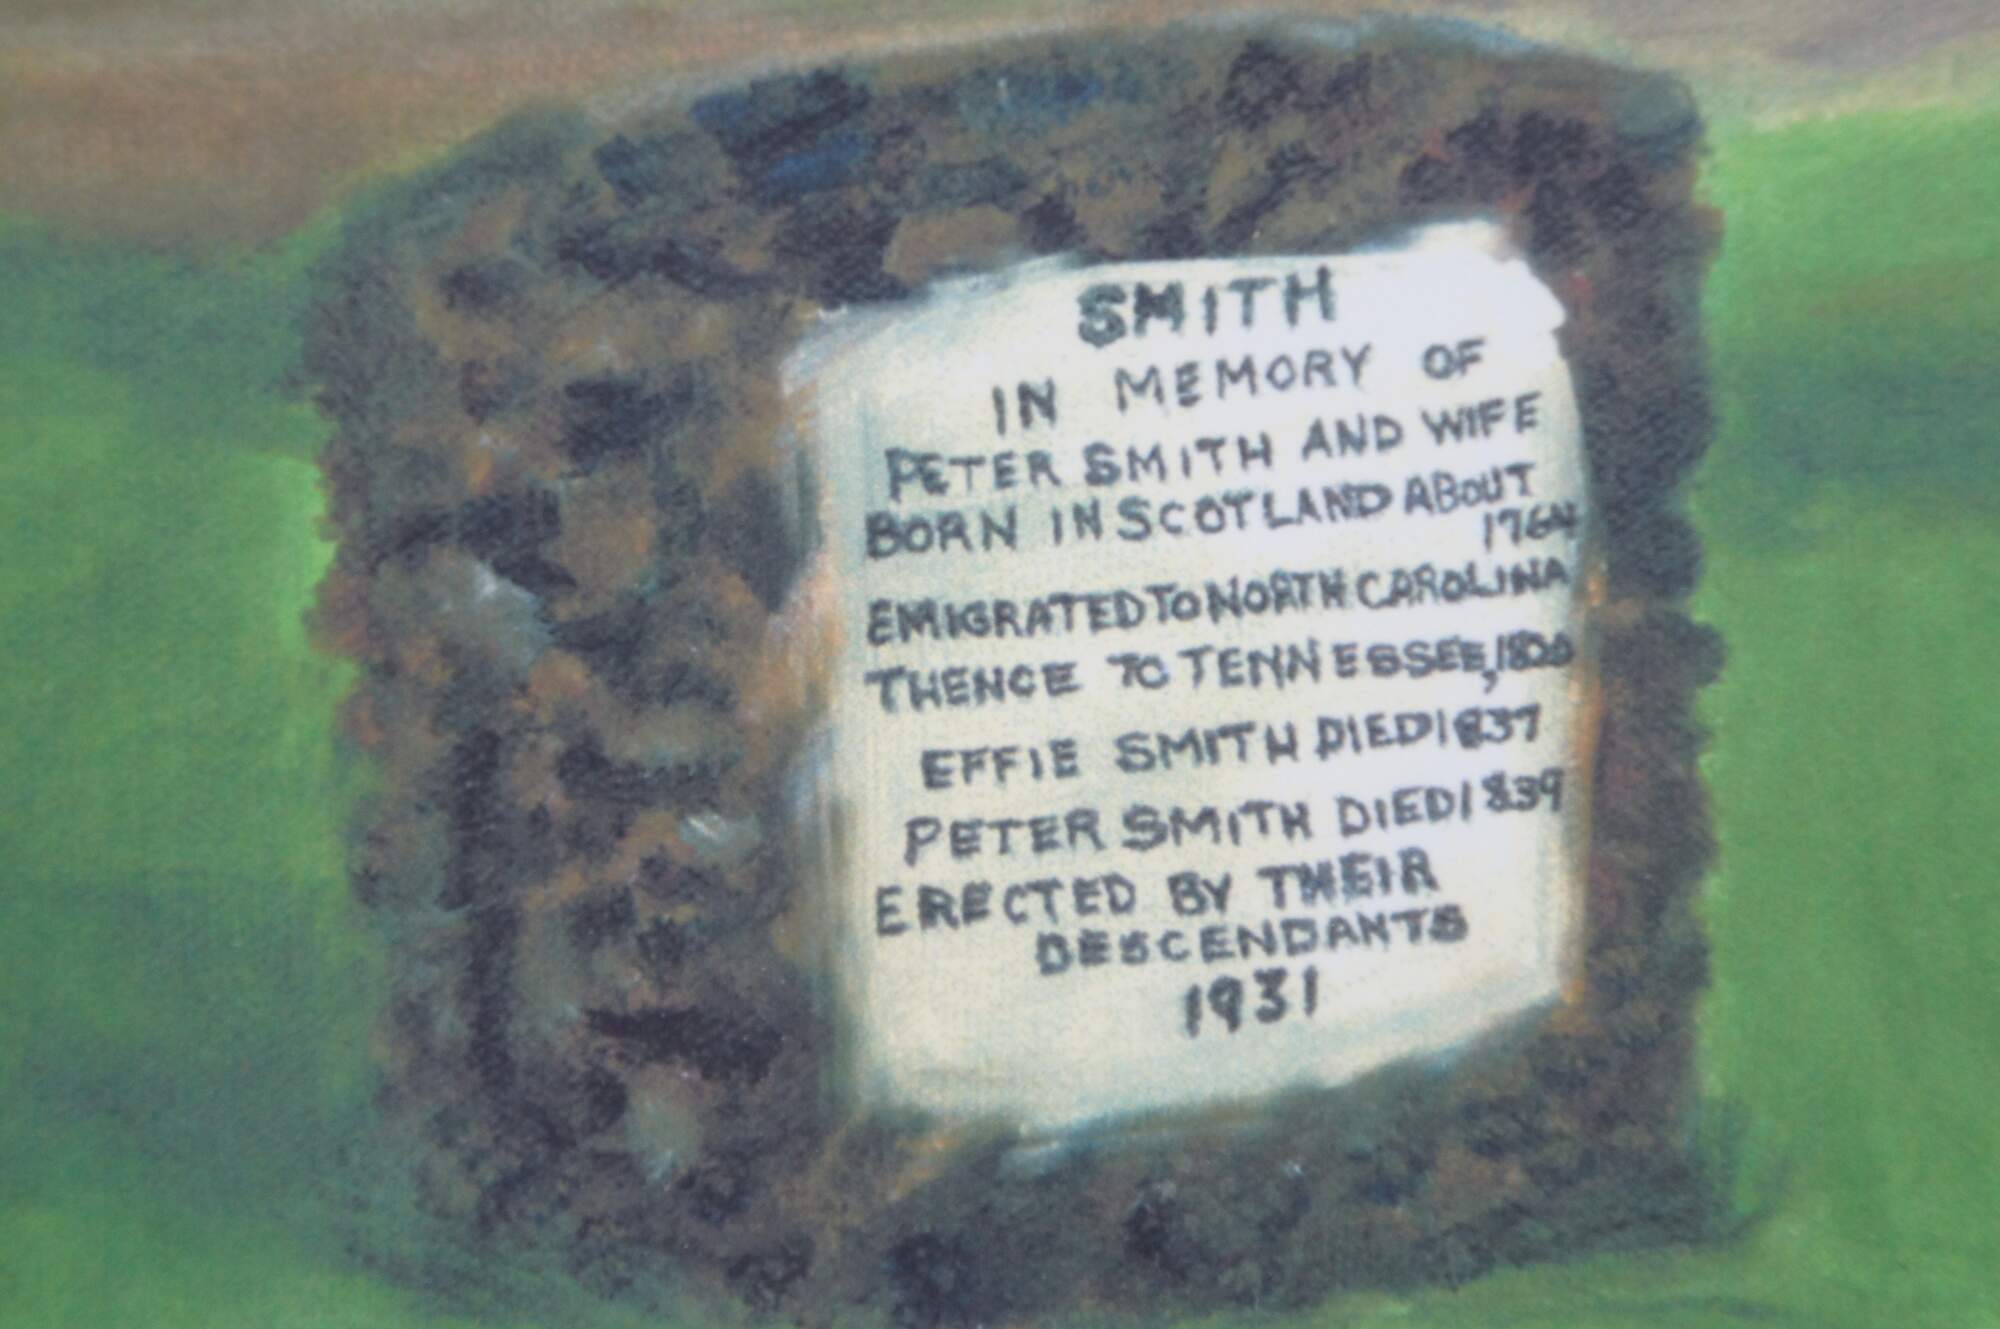 SMITH
IN MEMORY OF
PETER SMITH AND WIFE
BORN IN SCOTLAND ABOUT
1764
EMIGRATED TO NORTH CAROLINA
THENCE TO TENNESSEE, 1820
EFFIE SMITH DIED 1837
PETER SMITH DIED 1839
ERECTED BY THEIR
DESCENDANTS
1931